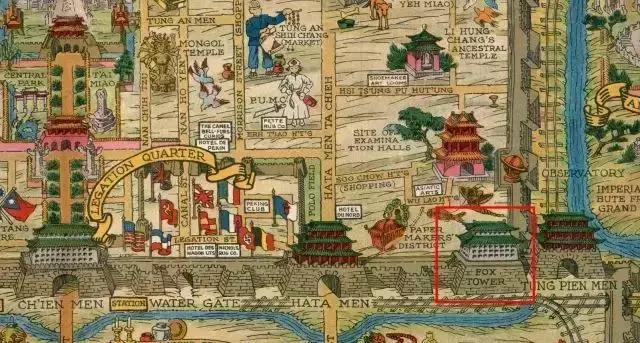 TUNG AN MEN
MONGOL
TEMPLE
TUNG AN
SHIH CHANG
(MARKET)
YEH MIAO
LI HUNG
CHANG'S
ANCESTRAL
TEMPLE
CENTRAL
PARK
T'AI
MIAO
NAN CHIH
MORRISON STREET (SHOPPING)
P.U.M.C.
SHOEMAKER
ART LOOMS
HSI TSUNG PU HUT'UNG
THE CAMEL
BELL-FURS
CURIOS
HOTEL DE
PEKIN
PETTE
RUG CO.
HATA MEN TA CHIEH
SITE OF
EXAMINA-
TION HALLS
LEGATION QUARTER
CANAL ST.
POLO FIELD
SOO CHOW HT'G
(SHOPPING)
ASIATIC
ARTS
OBSERVATORY
IMPERIAL
GRAND
PEKING
CLUB
HOTEL
DU NORD
PAPER
MAKERS'
DISTRICT
LEGATION ST.
HOTEL DES
WAGON LITS
NICHOLS
RUG CO.
FOX
TOWER
TUNG PIEN MEN
CH'IEN MEN
STATION
WATER GATE
HATA MEN